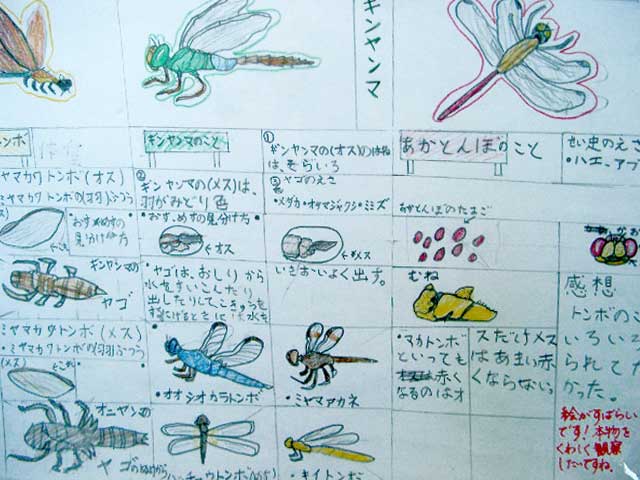 ギンヤンマ
トンボ
ギンヤンマのこと
①
ギンヤンマの(オス)のはね
は、そらいろ
あかとんぼのこと
せい虫のえさ
・ハエ、アブ
ヤマカワトンボ(オス)
②
ギンヤンマの(メス)は、
羽がみどり色
③ヤゴのえさ
・メダカ・オタマジャクシ・ミズ
あかとんぼのたまご
おす、めすの
見分け方
・おす、めすの見分け方
←オス
←メス
ギンヤンマの
ヤゴ
・ヤゴは、おしりから
水をすいこんだり
出したりしてこきゅうを
いきおいよく出す。
むね
感想
トンボの
いろい
られてた
かった。
ミヤマカワトンボ(メス)
(メス)
・オオシオカラトンボ
・ミヤマアカネ
・アカトンボ
といっても
赤く
なるのはオ
スだけメス
はあまい赤
くならない
オニヤンマの
ヤゴの
・キイトンボ
絵がすばらい
です!本物を
くわしく観察
したいですね。